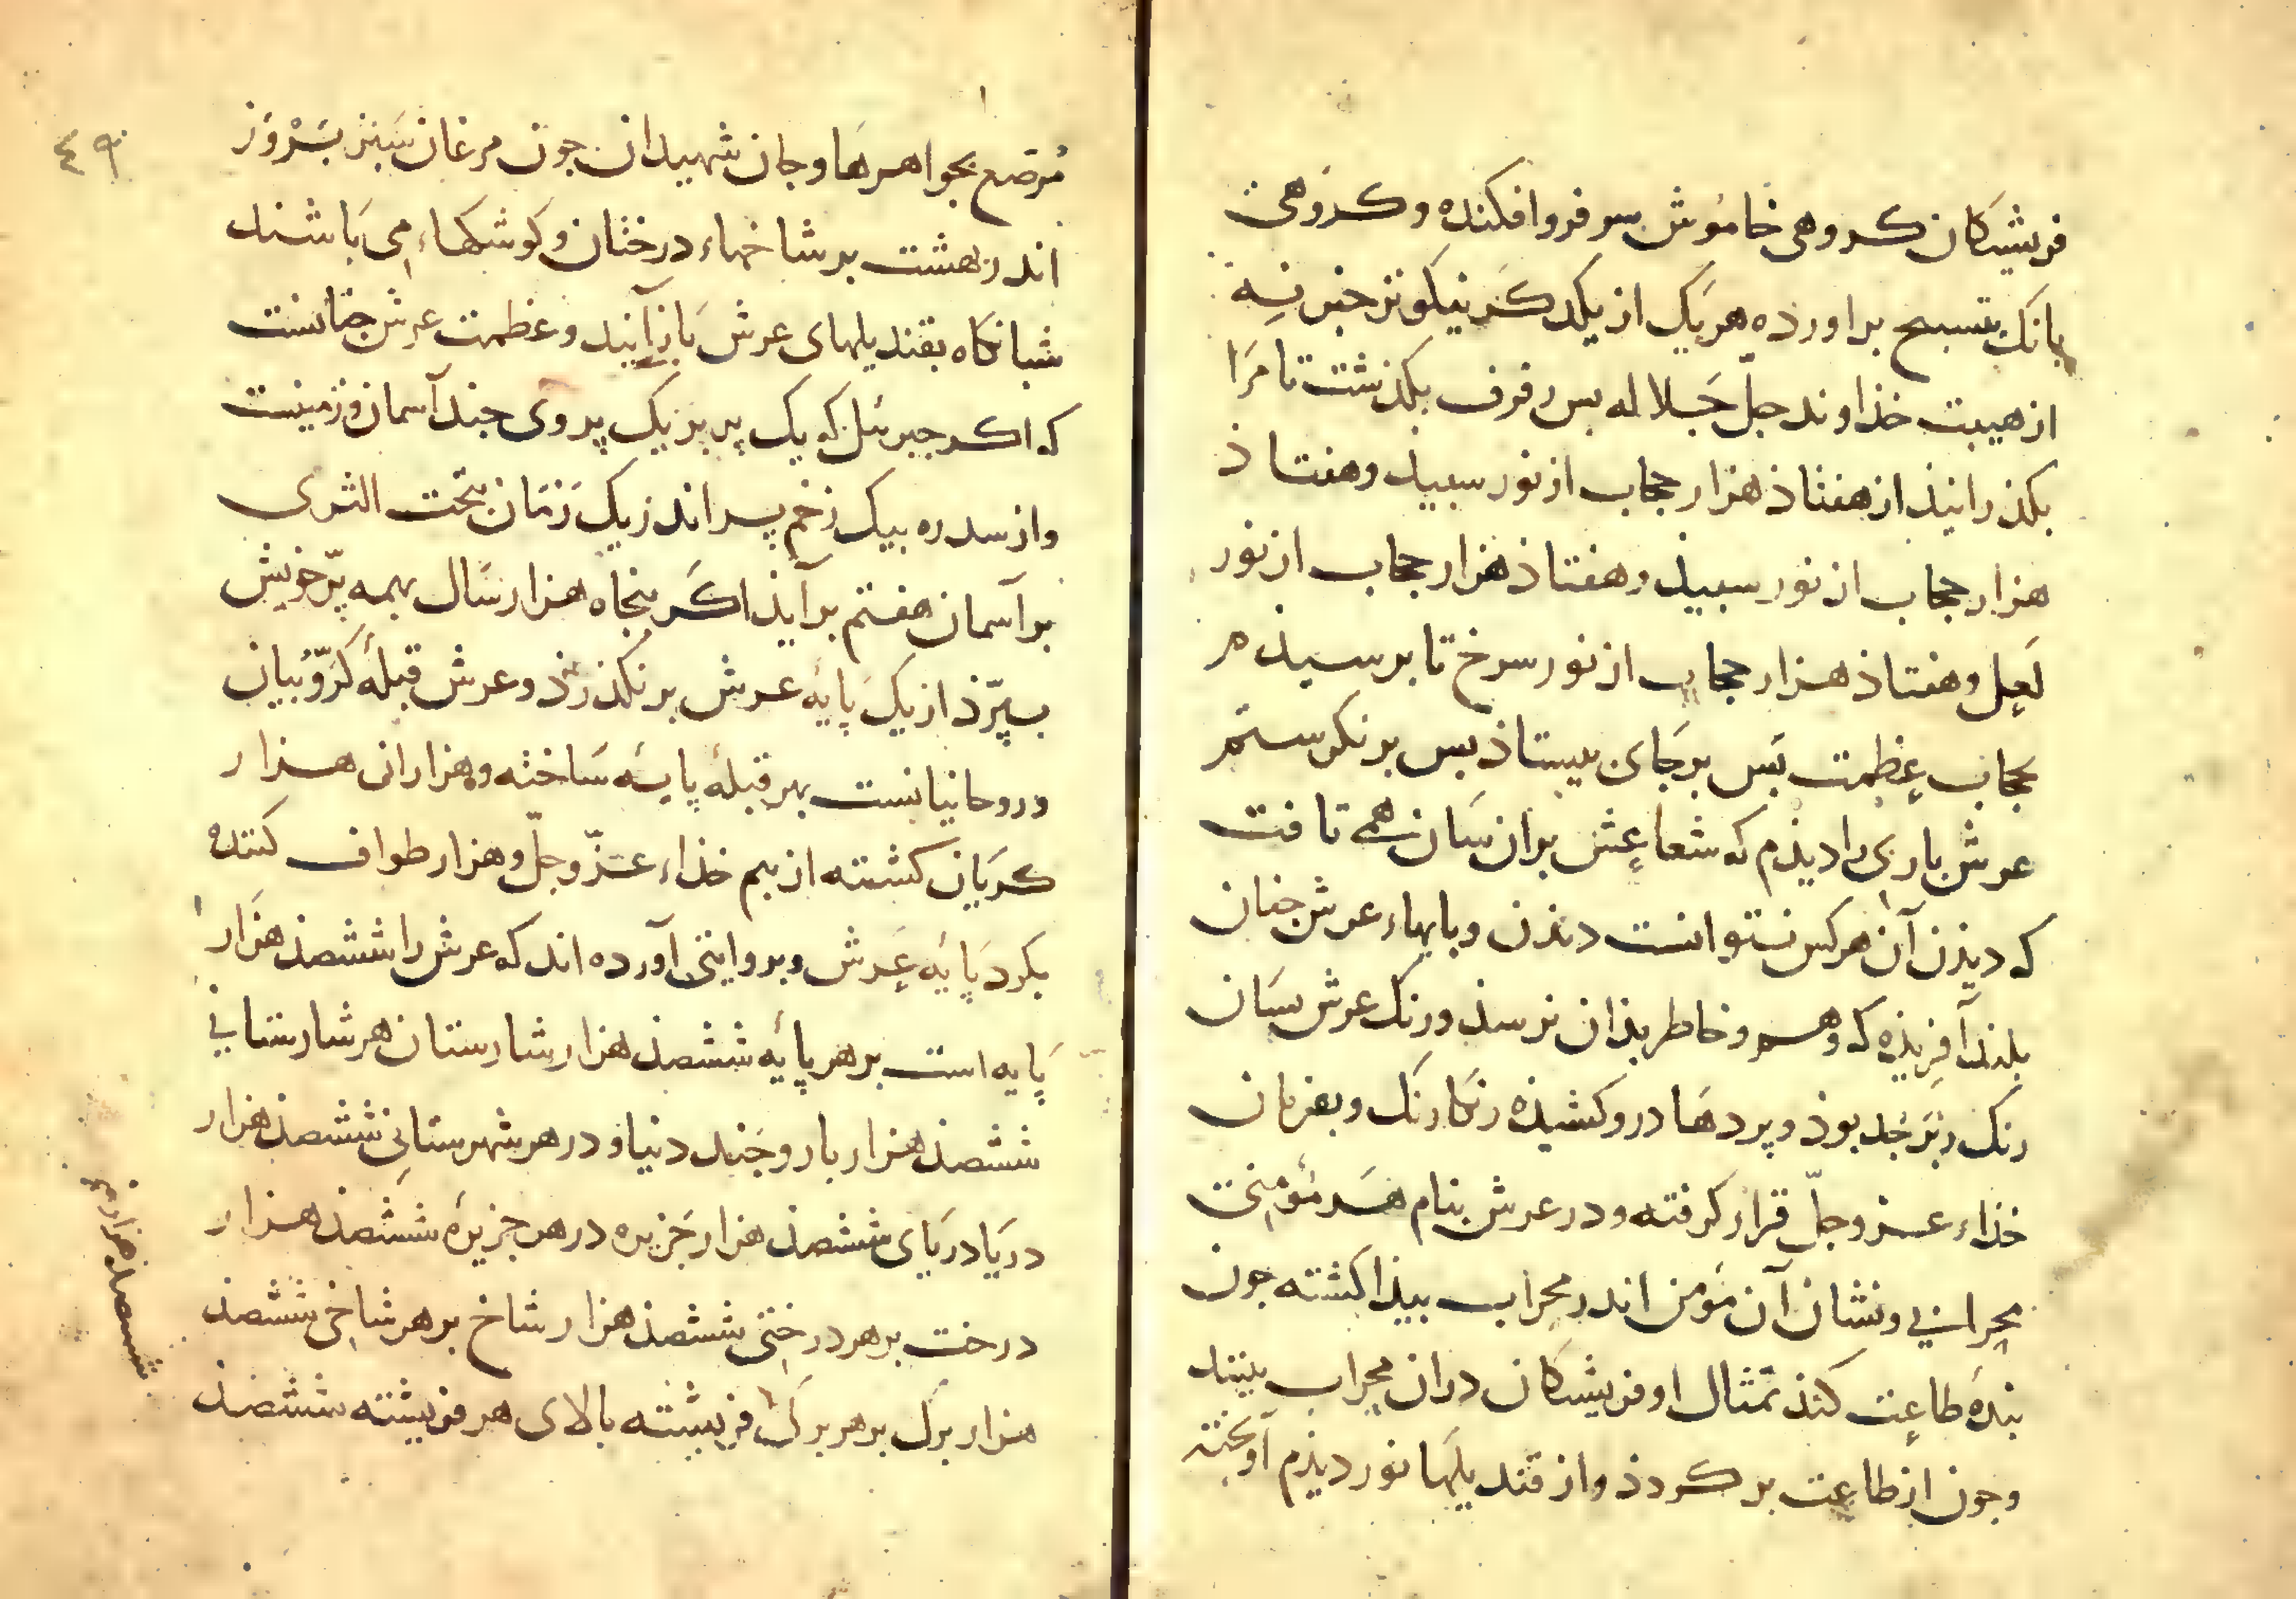 فریشتکان کروهی خاموش سر فروافکنده وکروهی
بانک بتسبیح براورده هریک از یکدکر نیکوتر خبر نه
از هیبت خذاوند جلّ جَلاله بس رفرف بکذشت تا مرَا
بکذرانیذ از هفتاذ هزار حجاب از نور سبیذ وهفتاذ
هزار حجاب از نور سبیذ وهفتاذ هزار حجاب از نور
لعل وهفتاذ هزار حجاب از نور سرخ تا برسیذم
بحجاب عظمت بَس برجَای بیستاذ بس برنکرستم
عرش باری را دیذم که شعاعش بران سَان همی تافت
که دیذن آن هرکس نتوانست دیذن وبایهاء عرش جنان
بلند آفریذه که وهم وخاطر بذان نرسذ ورنک عرش بسَان
رنک زبَرجَد بوذ وپردهَا دروکشیذه رنکارنک وبفرمان
خذاء عزوجلّ قرار کرفته ودر عرش بنام هر مؤمنی
محرابی ونشان آن مؤمن اندر محراب بیذا کشته جون
بندهٔ طاعت کند تمثال او فریشتکان دران محراب بینند
وجون از طاعت برکردذ واز قندیلهَا نور دیذم آویخته
٤٩
مُرصّع بجواهرهَا وجان شهیدان جون مرغان سَبز بَرْوَز
اندر بهشت برشاخهاء درختان وکوشکهاء می بَاشند
شبانکاه بقندیلهای عرش بَازآیند وعظمت عرش جنانست
که اکر جبرئل که یک پر بر یک پر وی جند آسمان وزمینست
واز سدره بیک زخم پر اندر یک زمَان بتحت الثری
برآسمان هفتم برآیذ اکَر بنجاه هزار سَال بهمه پرّ خویش
بپرّذ از یک پَایهٔ عرش برنکذرذ وعرش قبلهٔ کرّوبیان
وروحانیانست بهر قبلهٔ پایهٔ سَاخته وهزاران هزار
کریَان کشته از بیم خذاء عزّوجلّ وهزار طواف کننده
بکرد پَایهٔ عَرش وبروایتی آورده اند که عرش را ششصذ هزار
پَایه است برهر پایه ششصذ هزار شارستان هر شارستانی
ششصذ هزار بار وجَند دنیا ودر هر شهرستانی ششصذ هزار
دریَا در یَای ششصذ هزار جَزیره در هر جزیرهٔ ششصذ هزار
درخت برهر درختی ششصذ هزار شاخ برهر شاخی ششصذ
هزار برک برهر برکی فریشته بالای هر فریشته ششصذ
ششصد هزار